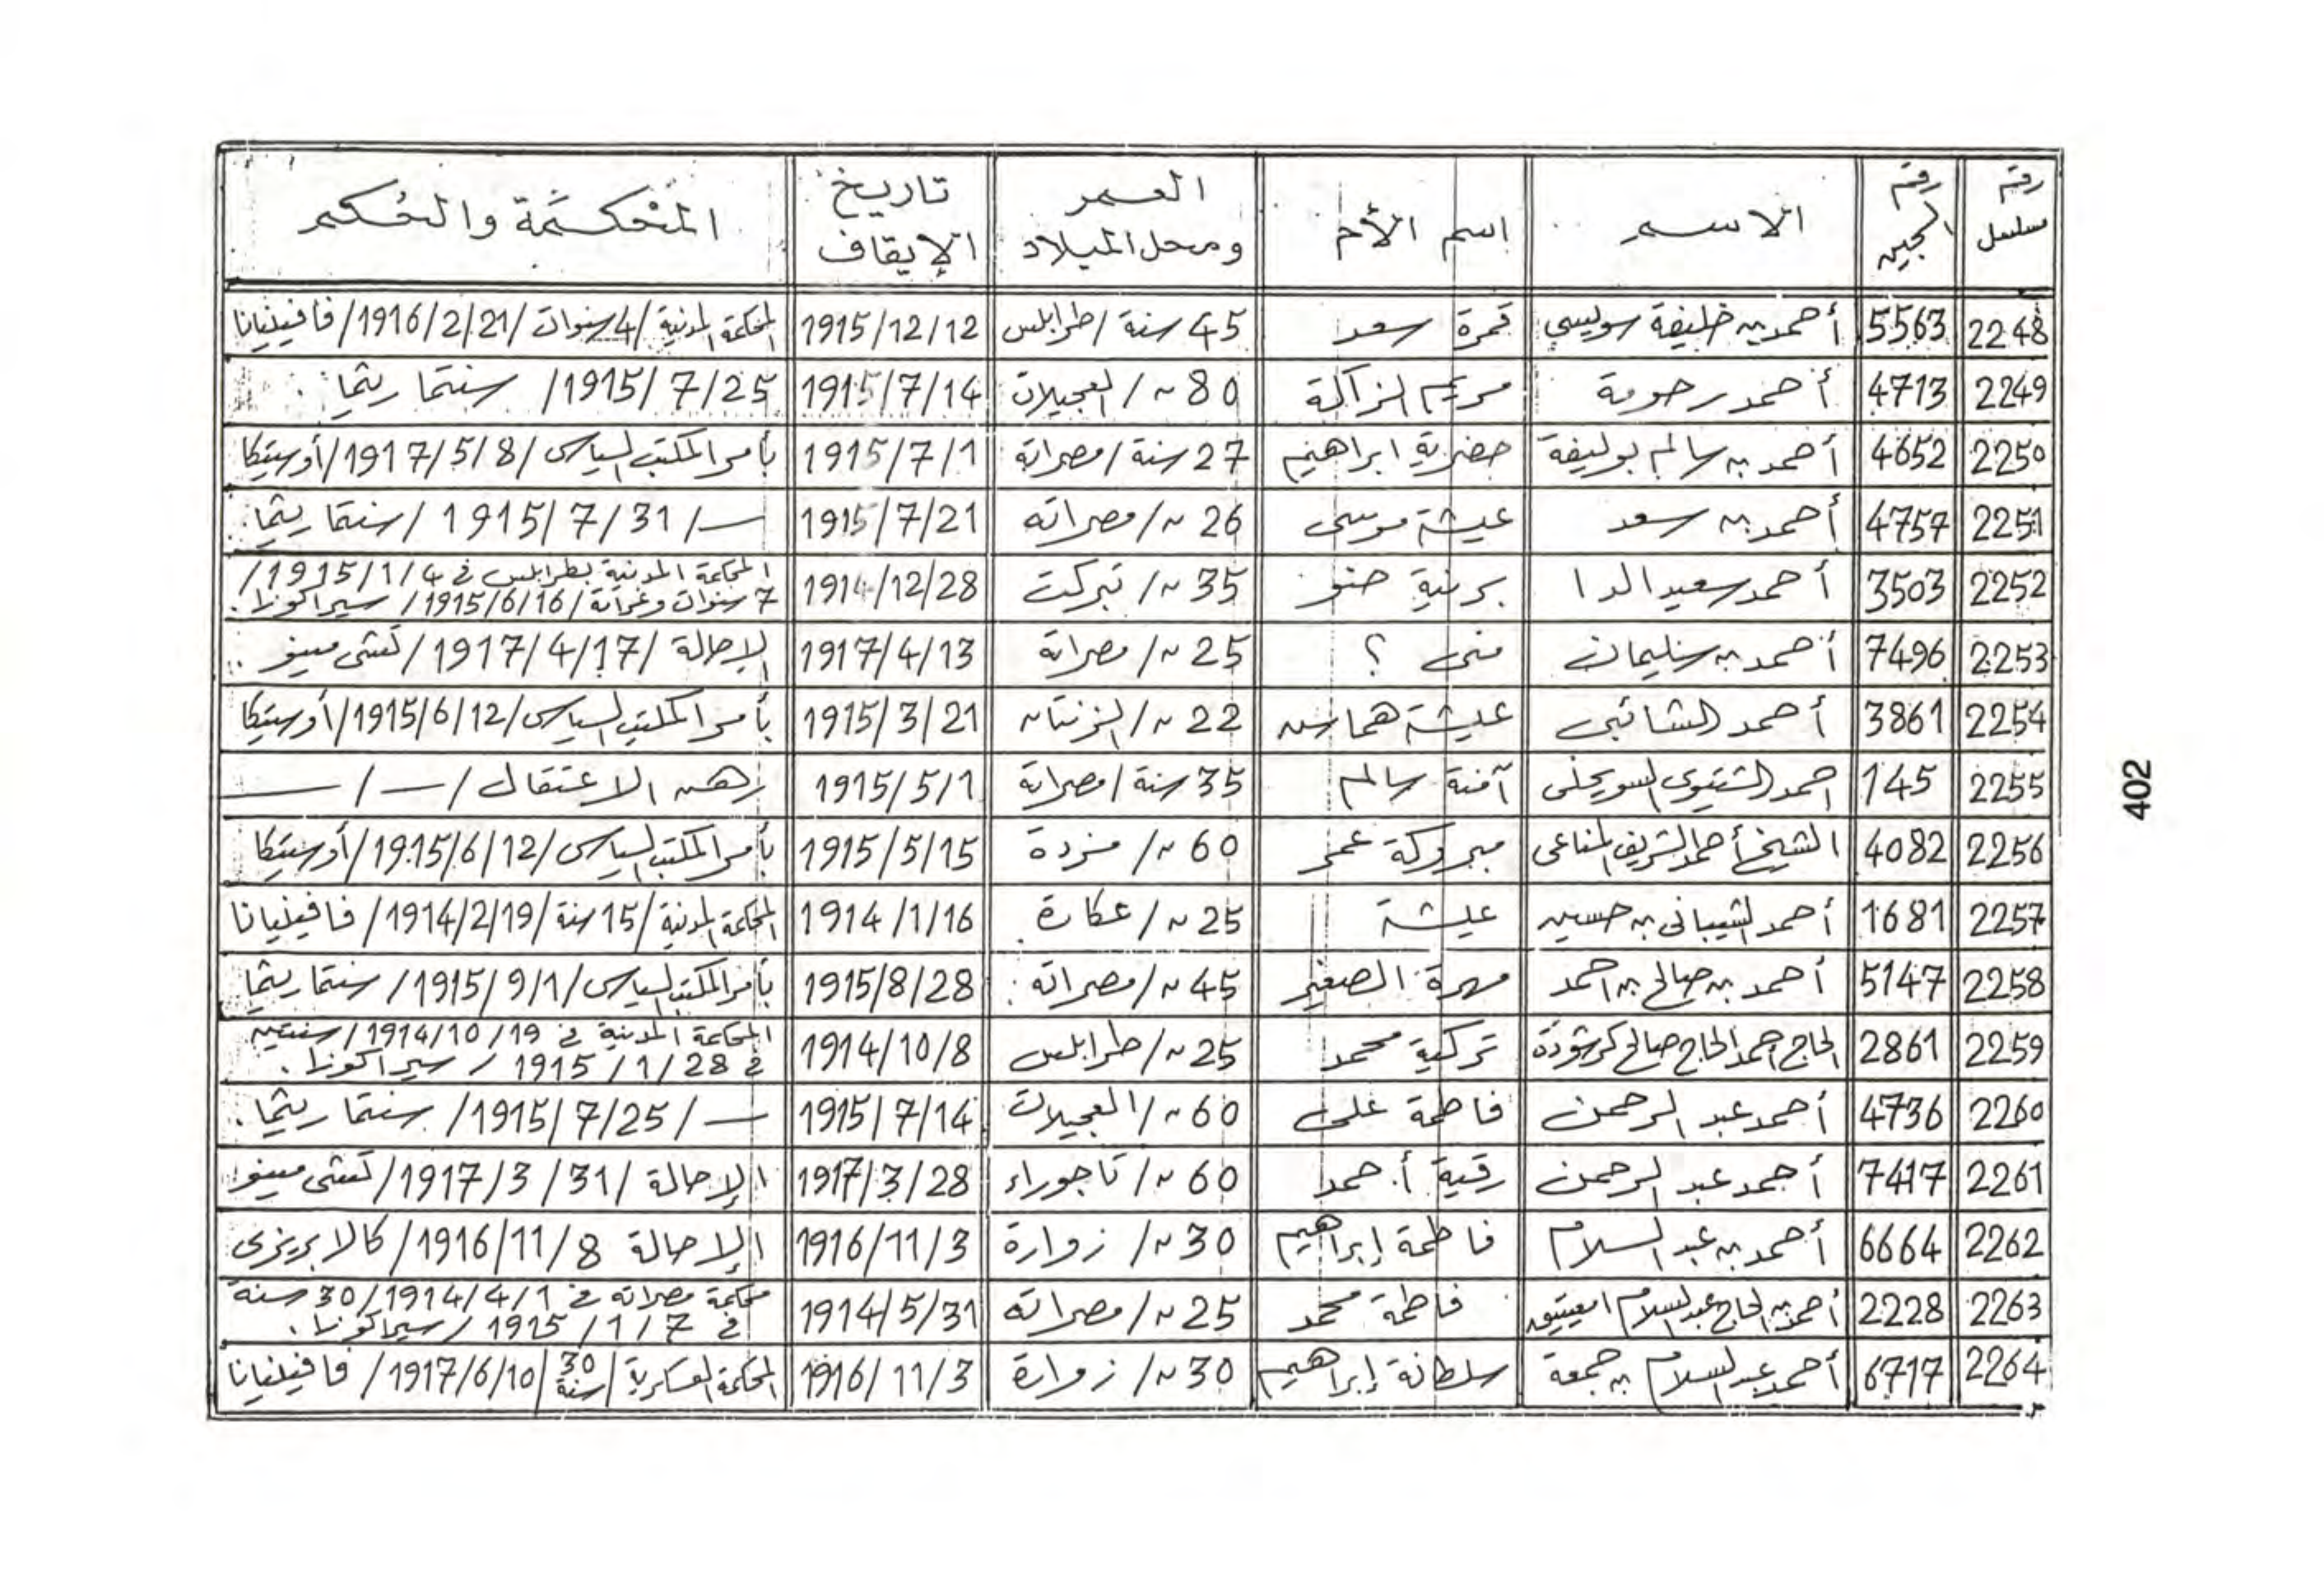 رقم مسلسل | رقم السجين | الاسم | اسم الأم | العمر ومحل الميلاد | تاريخ الإيقاف | المحكمة والحكم
2248 | 5563 | أحمد بن خليفة سويسي | قمرة سعد | 45 سنة / طرابلس | 1915/12/12 | المحكمة المدنية / 4 سنوات / 1916/2/21 / فافينيانا
2249 | 4713 | أحمد رحومة | مريم الزاكة | 80 ~ / العجيلات | 1915/7/14 | 1915/7/25 / سنتا ريثما
2250 | 4652 | أحمد بن سالم بوليفة | حضرية ابراهيم | 27 سنة / مصراتة | 1915/7/1 | بأمر المكتب السياسى / 1917/5/8 / أوستيكا
2251 | 4757 | أحمد بن سعد | عيشة موسى | 26 ~ / مصراته | 1915/7/21 | — / 1915/7/31 / سنتا ريثما
2252 | 3503 | أحمد سعيد الدا | برنية حنو | 35 ~ / تبركت | 1914/12/28 | المحكمة المدنية بطرابلس في 1915/1/4 /
7 سنوات وغرامة / 1915/6/16 / سيراكوزا.
2253 | 7496 | أحمد بن سليمان | منى ؟ | 25 ~ / مصراتة | 1917/4/13 | الإحالة / 1917/4/17 /
2254 | 3861 | أحمد الشائبى | عيشة | 22 ~ / الزنتان | 1915/3/21 | بأمر المكتب السياسى / 1915/6/12 / أوستيكا
2255 | 145 | احمد الشتيوى السويحلى | آمنة سالم | 35 سنة / مصراتة | 1915/5/1 | رهن الاعتقال / — / —
2256 | 4082 | الشيخ أحمد الشريف المناعى | مبروكة عمر | 60 ~ / مزدة | 1915/5/15 | بأمر المكتب السياسى / 1915/6/12 / أوستيكا
2257 | 1681 | أحمد الشيبانى بن حسين | عيشة | 25 ~ / عكارة | 1914/1/16 | المحكمة المدنية / 15 سنة / 1914/2/19 / فافينيانا
2258 | 5147 | أحمد بن صالح بن احمد | مهرة الصغير | 45 ~ / مصراته | 1915/8/28 | بأمر المكتب السياسى / 1915/9/1 / سنتا ريثما
2259 | 2861 | الحاج احمد الحاج صالح كرشودة | تركية محمد | 25 ~ / طرابلس | 1914/10/8 | المحكمة المدنية في 1914/10/19 / سنتين
في 1915/1/28 / سيراكوزا.
2260 | 4736 | أحمد عبد الرحمن | فاطمة على | 60 ~ / العجيلات | 1915/7/14 | — / 1915/7/25 / سنتا ريثما.
2261 | 7417 | أحمد عبد الرحمن | رقية أحمد | 60 ~ / تاجوراء | 1917/3/28 | الإحالة / 1917/3/31 /
2262 | 6664 | أحمد بن عبد السلام | فاطمة إبراهيم | 30 ~ / زوارة | 1916/11/3 | الإحالة 1916/11/8 / كالابريزى
2263 | 2228 | أحمد بن الحاج عبد السلام امعيتيق | فاطمة محمد | 25 ~ / مصراته | 1914/5/31 | محكمة مصراته في 1914/4/1 / 30 سنة
في 1915/1/7 / سيراكوزا.
2264 | 6717 | أحمد عبد السلام بن جمعة | سلطانة إبراهيم | 30 ~ / زوارة | 1916/11/3 | المحكمة العسكرية / 30 سنة / 1917/6/10 / فافينيانا
402